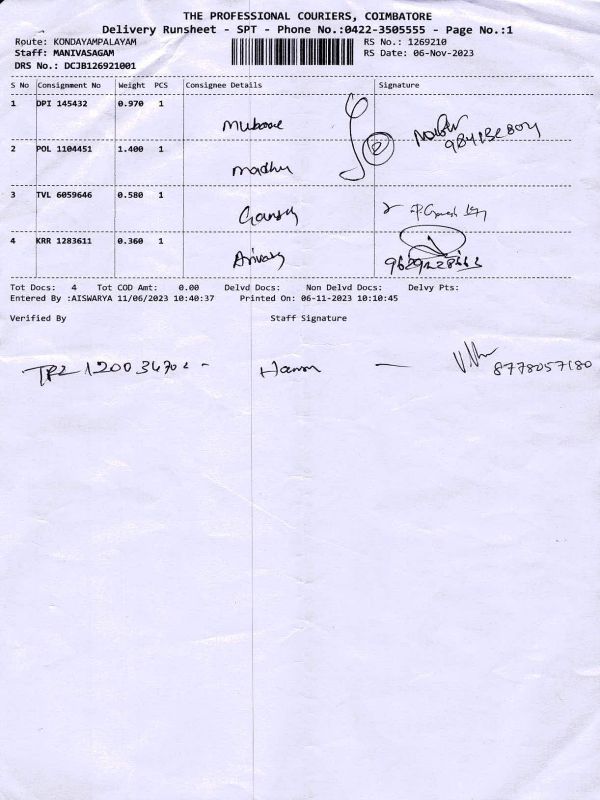 THE PROFESSIONAL COURIERS, COIMBATORE
Delivery Runsheet - SPT - Phone No.:0422-3505555 - Page No.:1
Route: KONDAYAMPALAYAM RS No.: 1269210
Staff: MANIVASAGAM RS Date: 06-Nov-2023
DRS No.: DCJB126921001
S No Consignment No Weight PCS Consignee Details Signature
1 DPI 145432 0.970 1
2 POL 1104451 1.400 1 2
madhu
3 TVL 6059646 0.580 1
4 KRR 1283611 0.360 1
Tot Docs: 4 Tot COD Amt: 0.00 Delvd Docs: Non Delvd Docs: Delvy Pts:
Entered By :AISWARYA 11/06/2023 10:40:37 Printed On: 06-11-2023 10:10:45
Verified By Staff Signature
8778057180